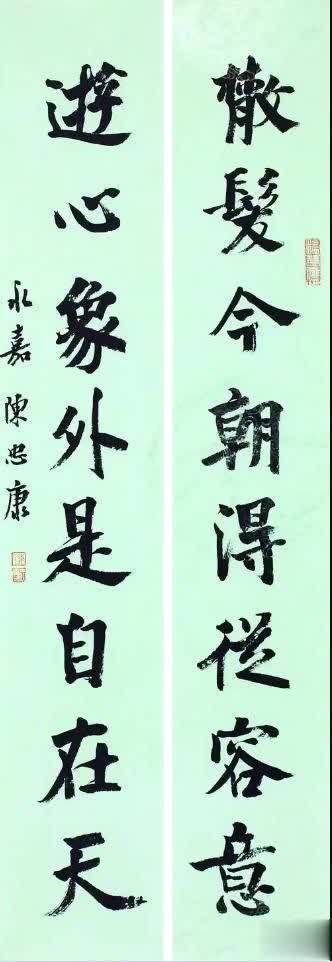 散髮今朝得從容意
遊心象外是自在天
永嘉 陳忠康